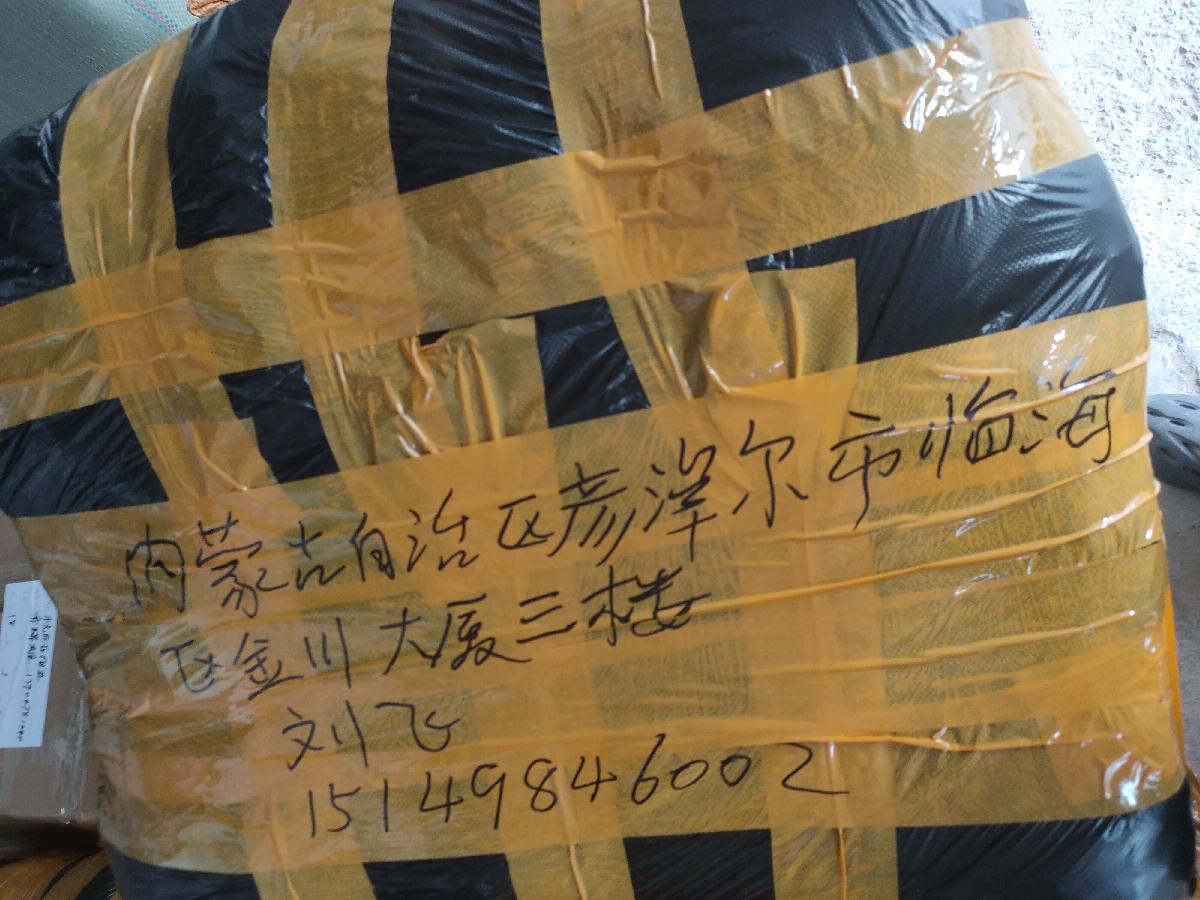 内蒙古自治区彦淖尔市临海
区金川大厦三楼
刘飞
15149846002